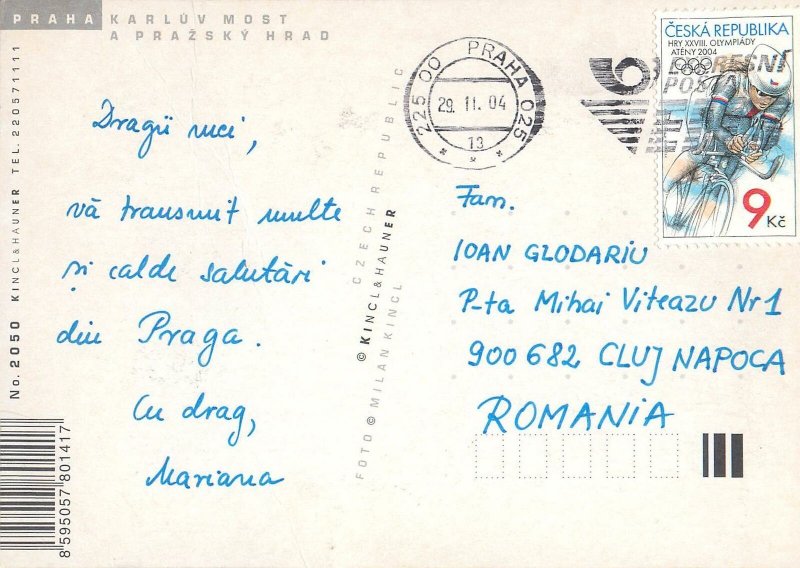 PRAHA KARLŮV MOST
A PRAŽSKÝ HRAD
Dragii mei,
vă transmit multe
și calde salutări
din Praga.
Cu drag,
Mariana
No. 2050 KINCL & HAUNER TEL. 220571111
8 595057 801417
CZECH REPUBLIC
© KINCL & HAUNER
FOTO © MILAN KINCL
225 00 PRAHA 025
29. 11. 04
13
ČESKÁ REPUBLIKA
HRY XXVIII. OLYMPIÁDY
ATÉNY 2004
9 Kč
Fam.
IOAN GLODARIU
P-ta Mihai Viteazu Nr 1
900 682 CLUJ NAPOCA
ROMANIA